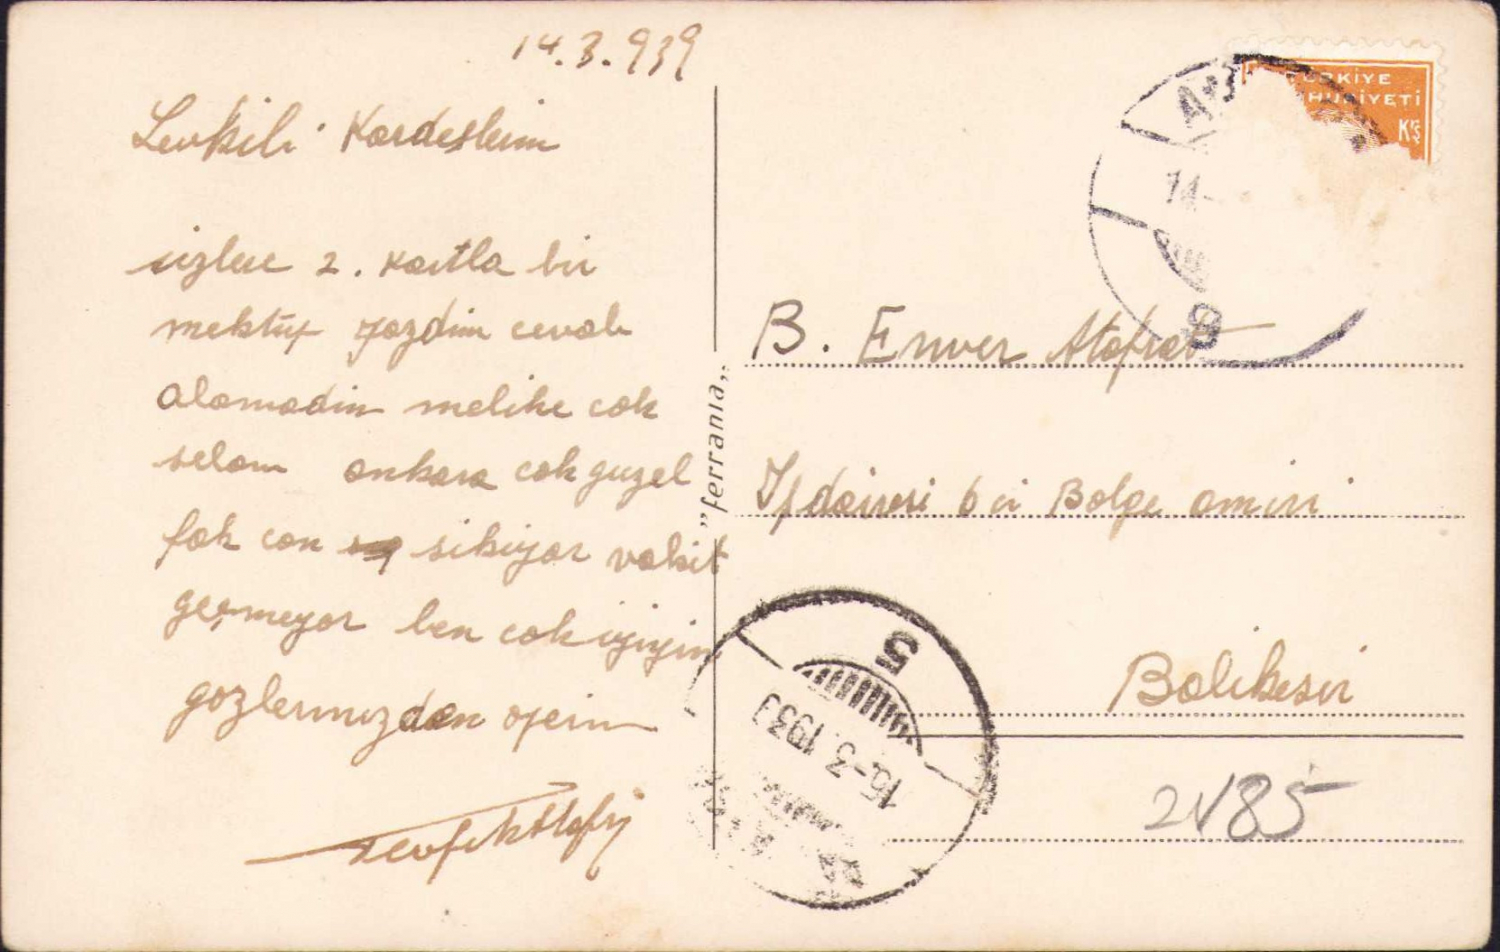 14.3.939
Sevkili Kardeslerim
sizlere 2. kartla bir
mektup yazdim cevab
alamadim melike cok
selam ankara cok guzel
fak can sikiyor vakit
geçmeyor ben cok iyiyim
gozlerinizden operim
Tevfik
"ferrania"
TÜRKİYE
CUMHURİYETİ
Krş
14-
B. Enver
İş dairesi bir Bolge amiri
Balikesir
5
15-3.1939
2185